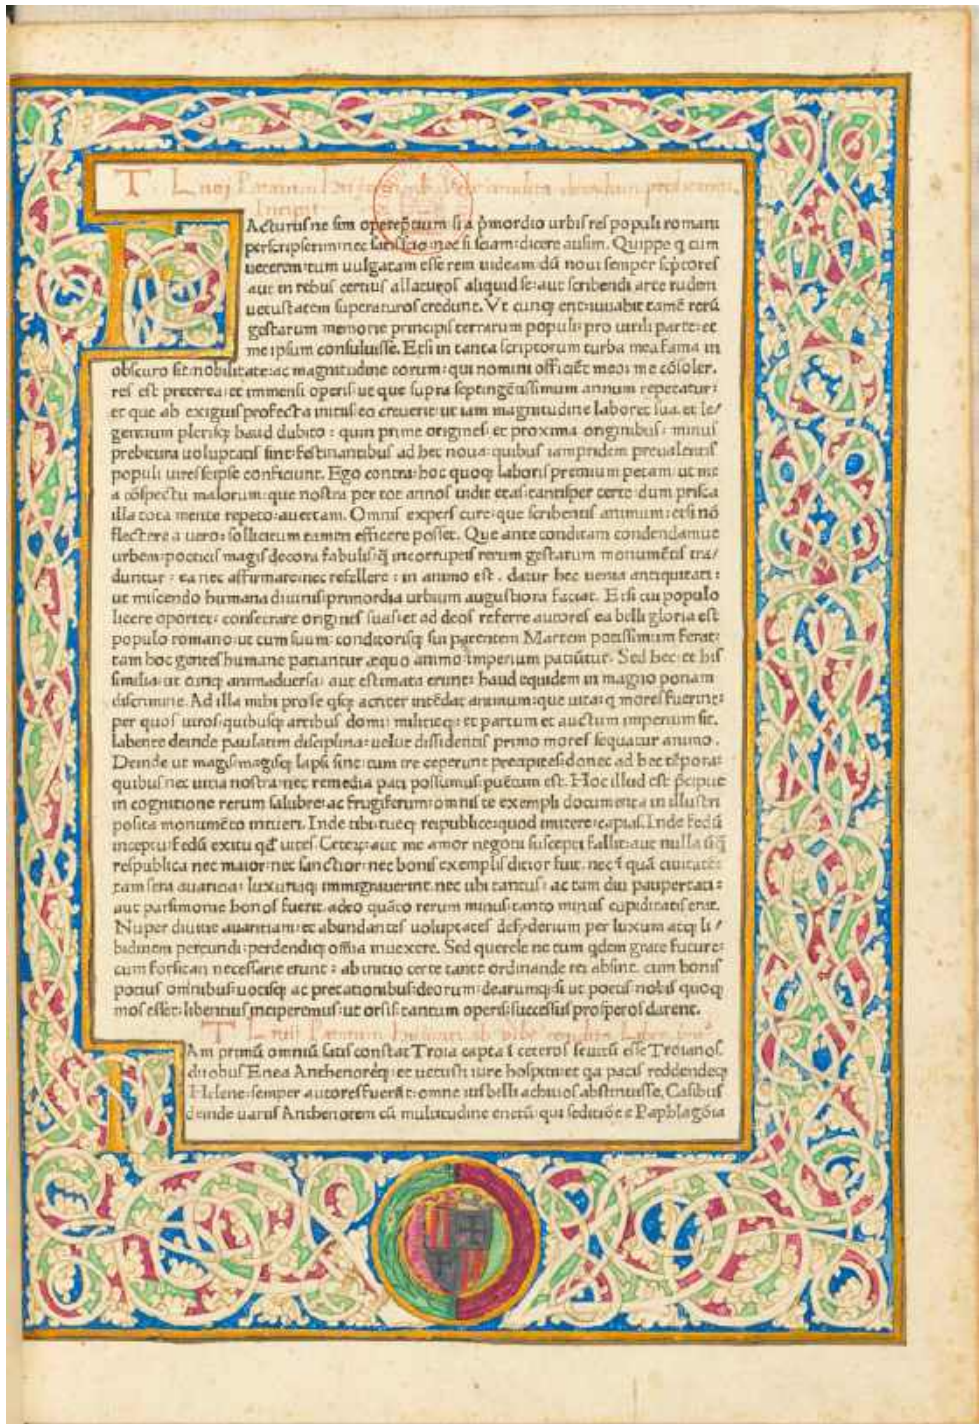 T. Liuij Patauini historici ab vrbe condita decadum prohemium
Incipit
FActurus ne sim operep̄tium si a p̄mordio urbis res populi romani
perscripserim: nec satis scio: nec si sciam: dicere ausim. Quippe q cum
ueterem: tum uulgatam esse rem uideam: dū noui semper sc̄ptores
aut in rebus certius allaturos aliquid se: aut scribendi arte rudem
uetustatem superaturos credunt. Vt cunq erit: iuuabit tamē rerū
gestarum memorie principis terrarum populi: pro uirili parte: et
me ipsum consuluisse. Etsi in tanta scriptorum turba mea fama in
obscuro sit: nobilitate: ac magnitudine eorum: qui nomini officiēt meo: me cōsoler.
res est preterea: et immensi operis: ut que supra septingētissimum annum repetatur:
et que ab exiguis profecta initiis: eo creuerit: ut iam magnitudine laboret sua. et le/
gentium plerisq haud dubito: quin prime origines: et proxima originibus: minus
prebitura uoluptatis sint: festinantibus ad hec noua: quibus iampridem preualentis
populi uires seipse conficiunt. Ego contra: hoc quoq laboris premium petam: ut me
a cōspectu malorum: que nostra per tot annos uidit etas: tantisper certe: dum prisca
illa tota mente repeto: auertam. Omnis expers cure: que scribentis animum: etsi nō
flectere a uero: sollicitum tamen efficere posset. Que ante conditam condendamue
urbem: poeticis magis decora fabulis: q̄ incorruptis rerum gestarum monumētis tra/
duntur: ea nec affirmare: nec refellere: in animo est. datur hec uenia antiquitati:
ut miscendo humana diuinis: primordia urbium augustiora faciat. Et si cui populo
licere oportet: consecrare origines suas: et ad deos referre autores ea belli gloria est
populo romano: ut cum suum: conditorisq sui parentem Martem potissimum ferat:
tam hoc gentes humane patiantur æquo animo: q̄ imperium patiūtur. Sed hec: et his
similia: ut cunq animaduersa: aut estimata erunt: haud equidem in magno ponam
discrimine. Ad illa mihi pro se qsq acriter intēdat animum: que uita: q mores fuerint:
per quos uiros: quibusq artibus domi: militieq: et partum et auctum imperium sit.
labente deinde paulatim disciplina: uelut dissidentis primo mores sequatur animo.
Deinde ut magis magisq lapsi sint: tum ire ceperint precipites: donec ad hec tēpora:
quibus nec uitia nostra: nec remedia pati possumus: puētum est. Hoc illud est p̄cipue
in cognitione rerum salubre: ac frugiferum: omnis te exempli documenta in illustri
posita monumēto intueri. Inde tibi: tueq reipublice: quod imitere: capias. Inde fedū
inceptu: fedū exitu qd̄ uites. Ceter: aut me amor negotii suscepti fallit: aut nulla unq
respublica nec maior: nec sanctior: nec bonis exemplis ditior fuit. nec ī quā ciuitatē:
tam sera auaritia: luxuriaq immigrauerint. nec ubi tantus: ac tam diu paupertati:
aut parsimonie honos fuerit. adeo quāto rerum minus: tanto minus cupiditatis erat.
Nuper diuitie auaritiam: et abundantes uoluptates desyderium per luxum atq li/
bidinem pereundi: perdendiq omīa inuexere. Sed querele ne tum qdem grate future:
cum forsitan necessarie erunt: ab initio certe tante ordinande rei absint. cum bonis
potius omnibus: uotisq ac precationibus: deorum: dearumq: si ut poetis: nobis quoq
mos esset: libentius inciperemus: ut orsis tantum operis: successus prosperos darent.
T. Liuij Patauini historici ab vrbe condita Liber primus
IAm primū omniū satis constat Troia capta ī ceteros seuitū esse Troianos.
duobus Enea Anthenorēq: et uetusti iure hospitii: et qa pacis reddendeq
Helene: semper autores fuerāt: omne ius belli achiuos abstinuisse. Casibus
deinde uariis Anthenorem cū multitudine enetū: qui seditiōe e Paphlagōia